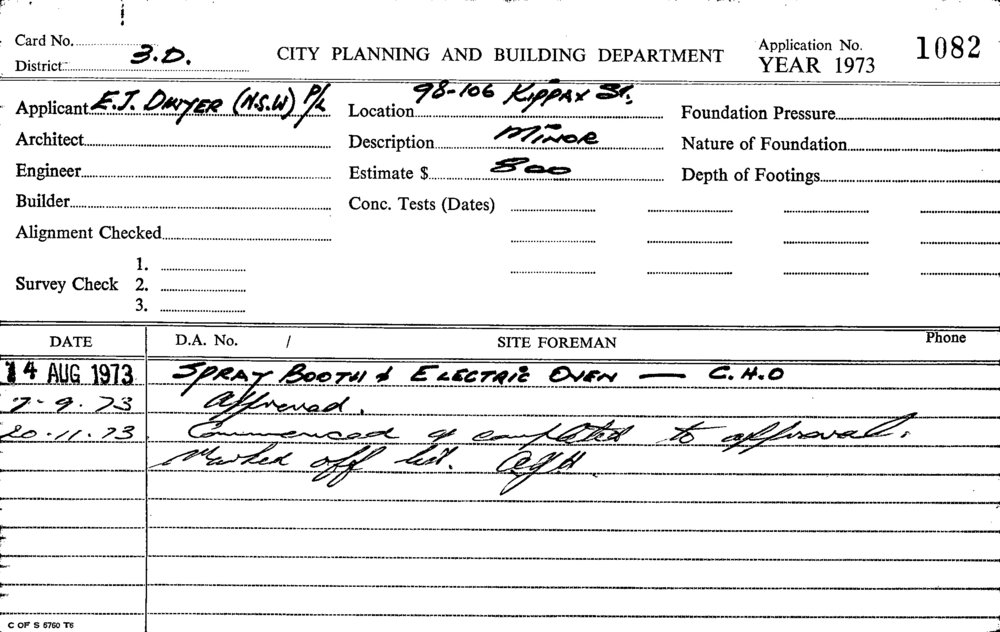 Card No.
District 3.D.
CITY PLANNING AND BUILDING DEPARTMENT
Application No. 1082
YEAR 1973
Applicant E.J. DWYER (N.S.W) P/L
Location 98-106 KIPPAX ST.
Foundation Pressure
Architect
Description MINOR
Nature of Foundation
Engineer
Estimate $ 800
Depth of Footings
Builder
Conc. Tests (Dates)
Alignment Checked
1.
Survey Check 2.
3.
DATE D.A. No. / SITE FOREMAN Phone
14 AUG 1973 SPRAY BOOTH & ELECTRIC OVEN — C.H.O
7-9.73 Approved.
20.11.73 Commenced & completed to approval.
Marked off list.
C OF S 5760 T5